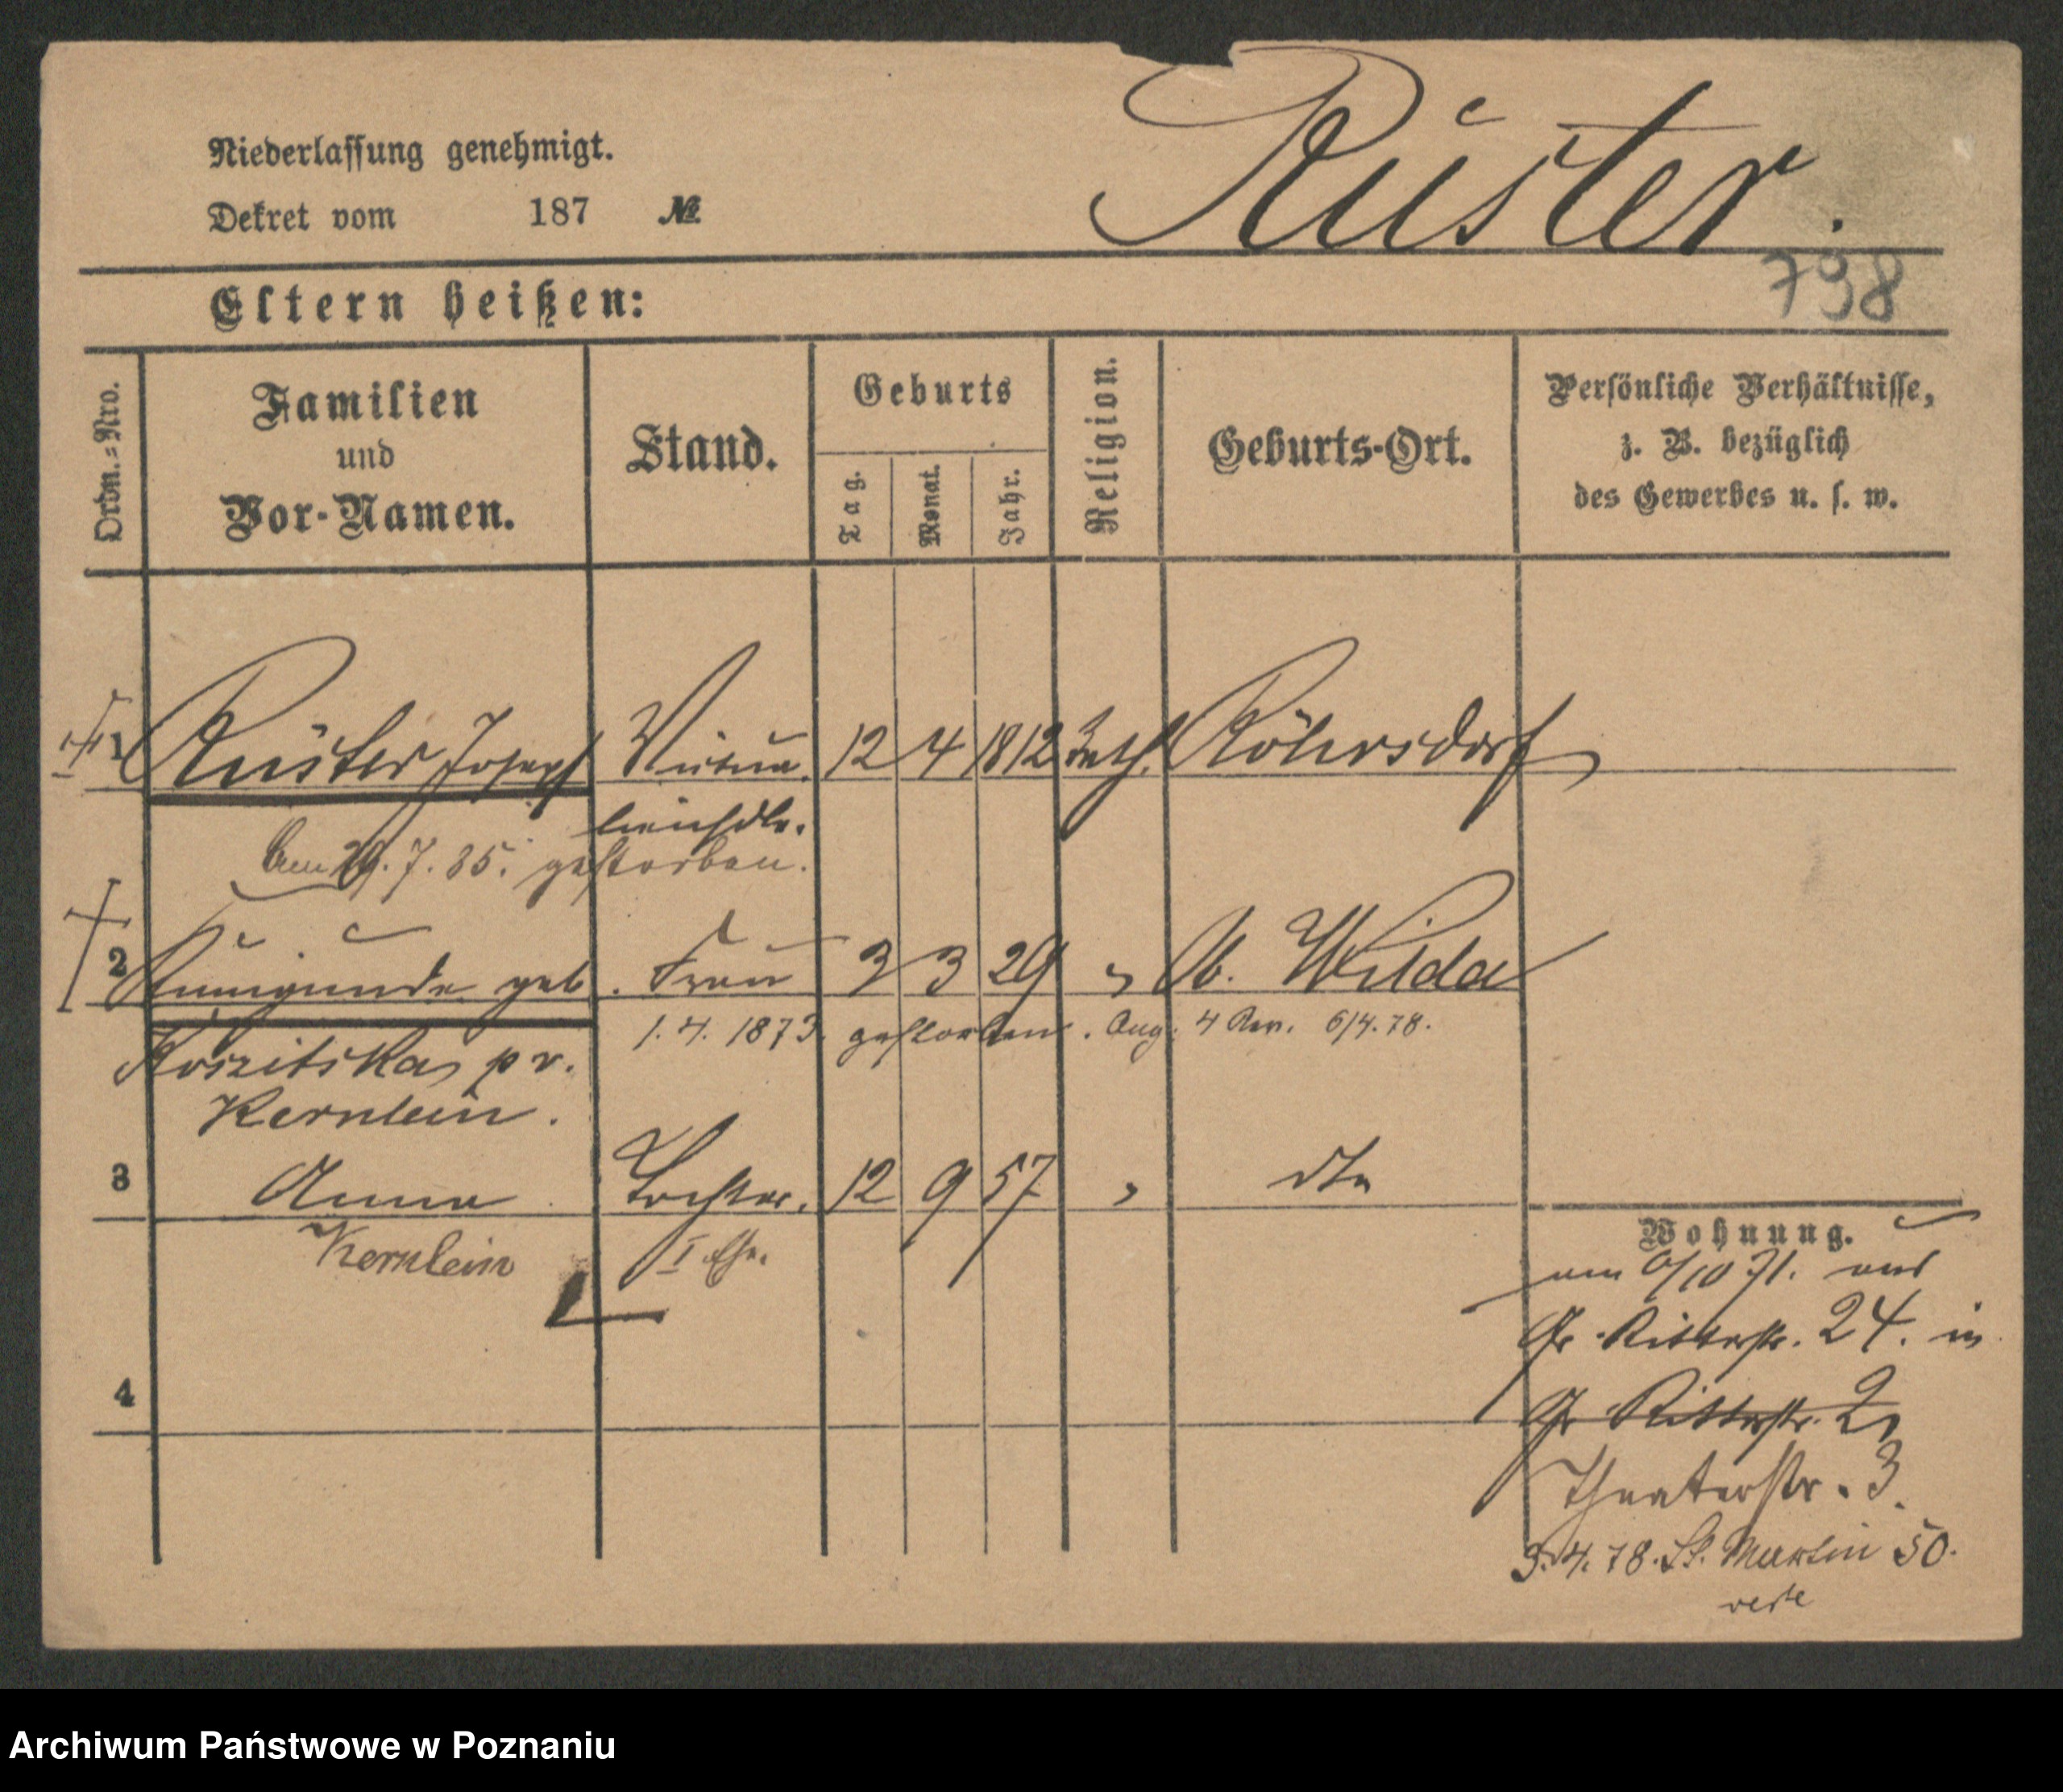 Rüster.
Niederlassung genehmigt.
Dekret vom 187 №
798
Eltern heißen:
Ordn.=Nro.
Familien
und
Vor-Namen.
Stand.
Geburts
Tag.
Monat.
Jahr.
Religion.
Geburts-Ort.
Persönliche Verhältnisse,
z. B. bezüglich
des Gewerbes u. s. w.
1 Rüster Joseph 12 4 1812 kath. Röhrsdorf
7. 85. gestorben.
2 Kunigunde geb. Frau 3 3 29 " O. Wilda
1. 4. 1873. gestorben. 4 Rev. 6/4.78.
Koszitska, pr.
Kernlein.
3 Anna Tochter. 12 9 57 " dto
Kernlein I Ehe.
4
Wohnung.
am /10 71. aus
Gr. Ritterstr. 24. in
Gr. Ritterstr. 2,
Theaterstr. 3.
3.4.78. St. Martin 50.
verte
Archiwum Państwowe w Poznaniu